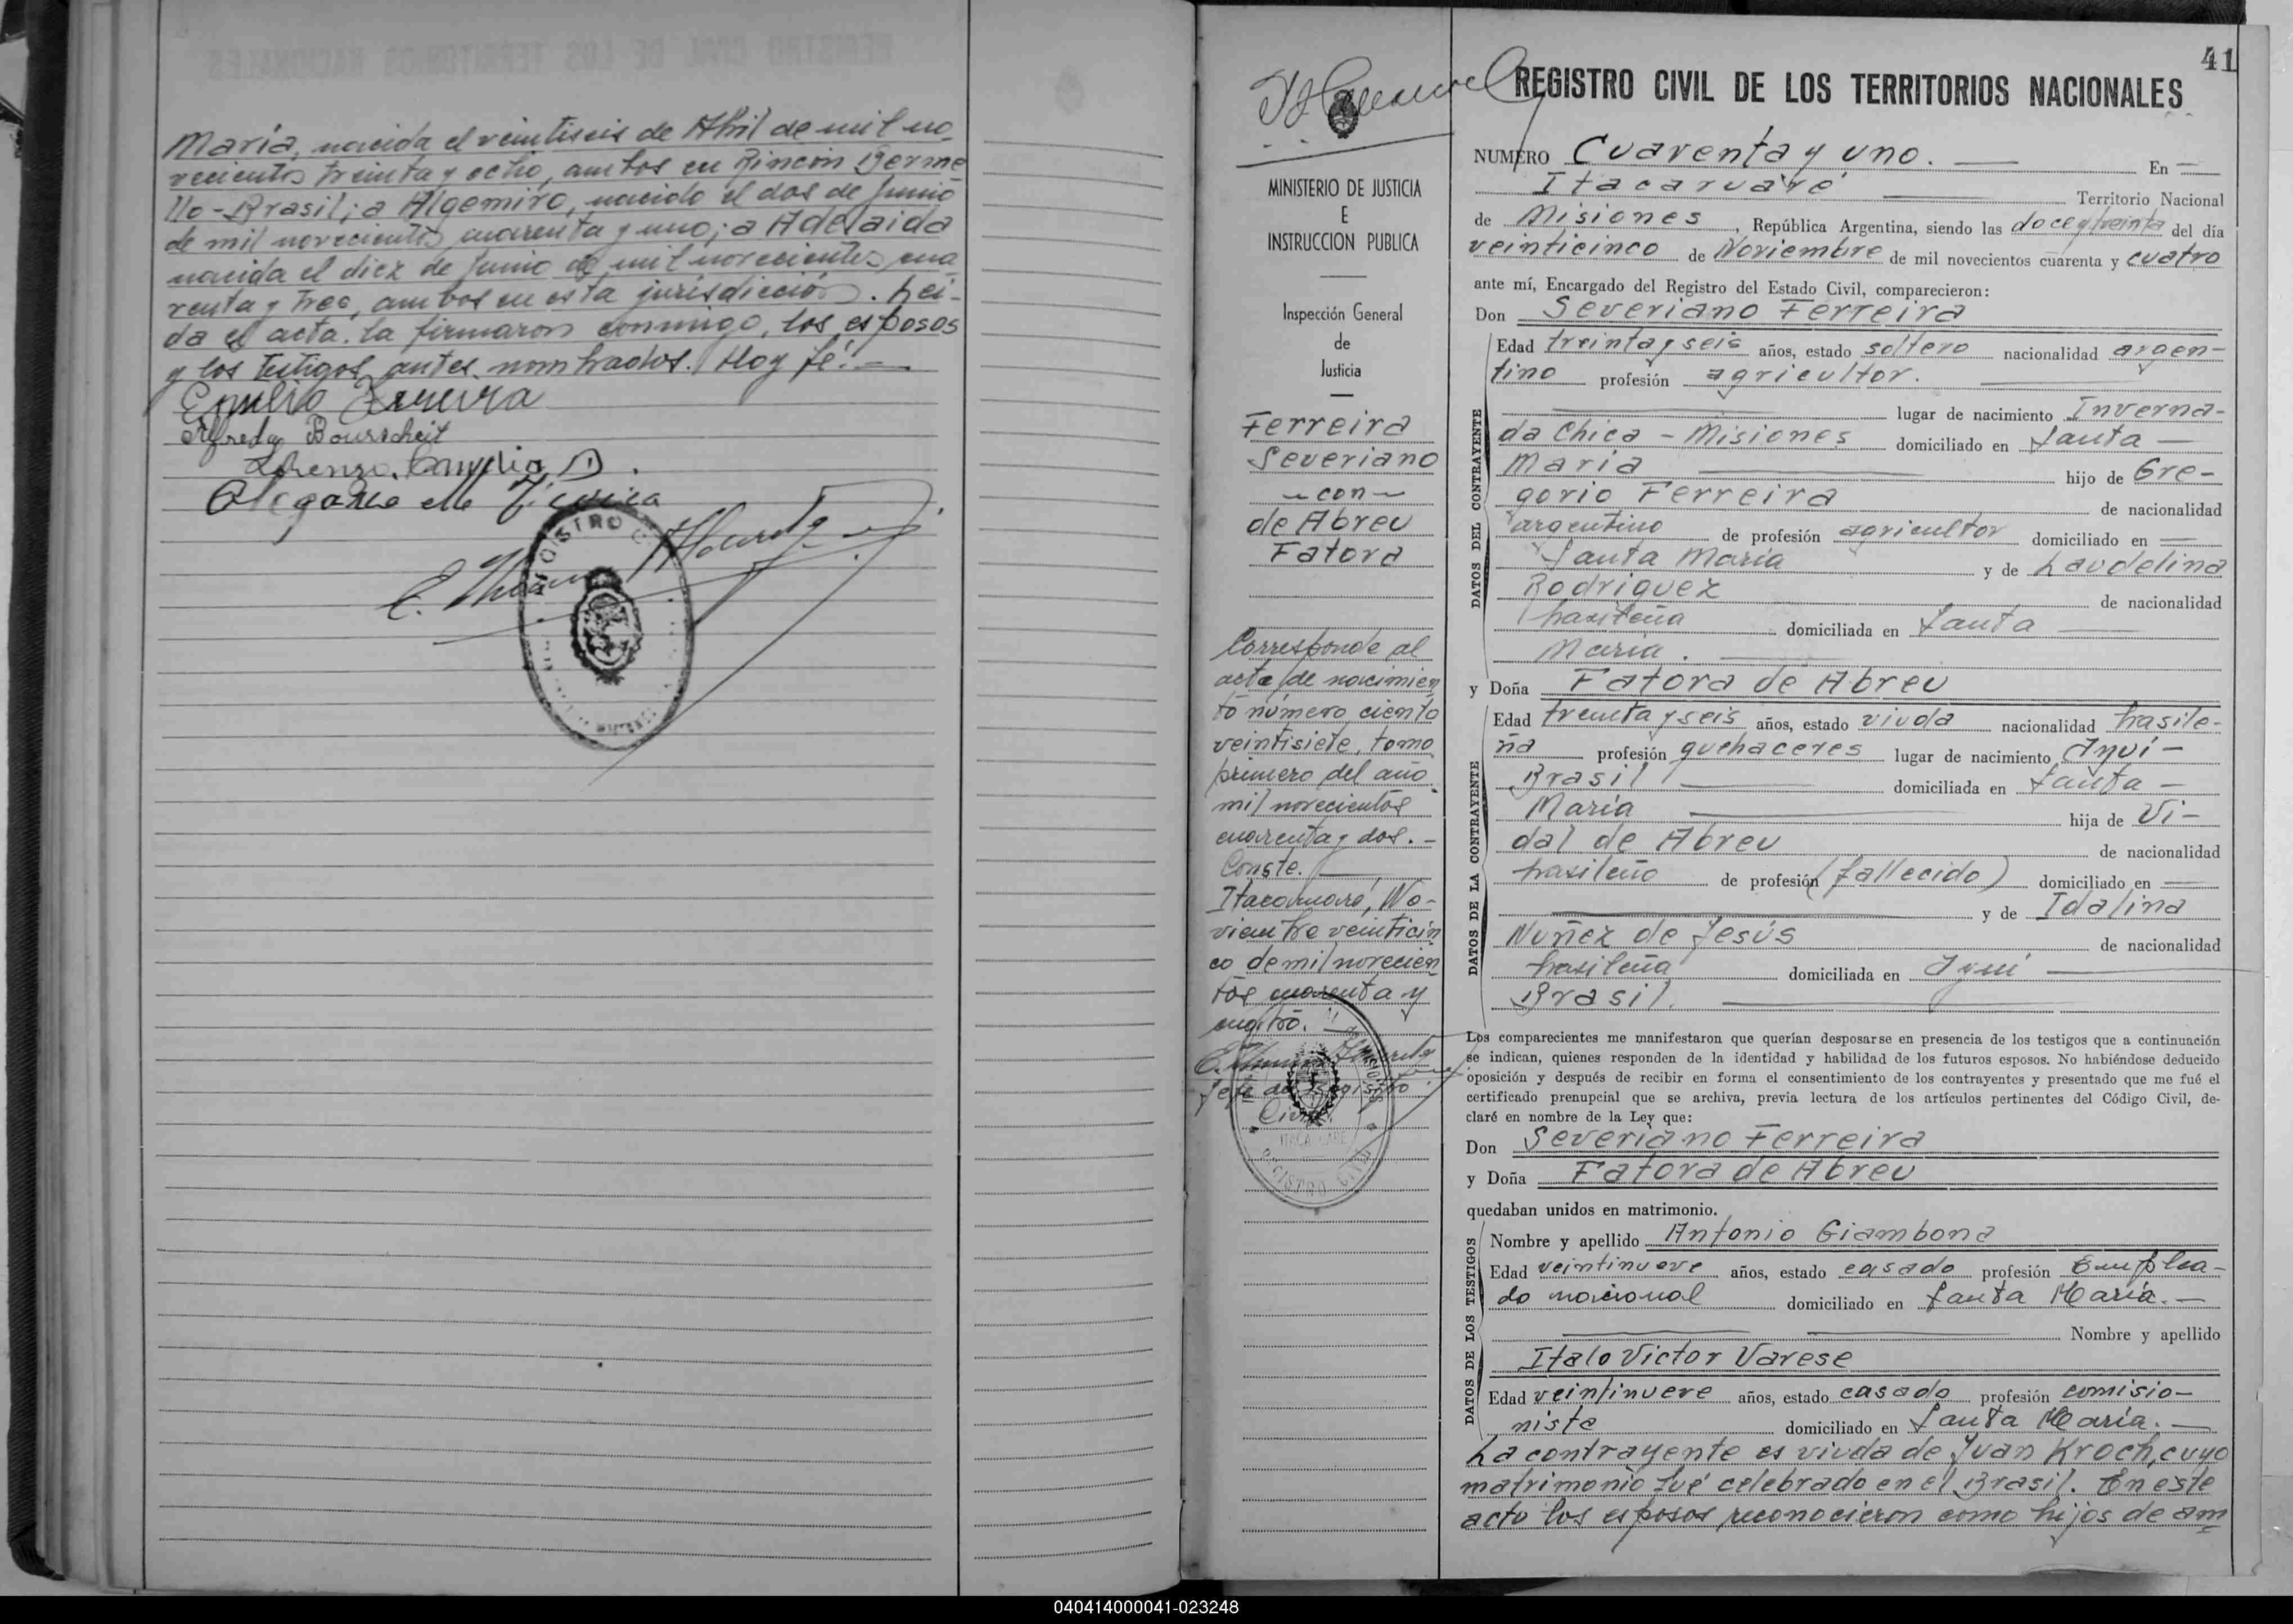 María, nacida el veintiseis de Abril de mil no-
vecientos treinta y ocho, ambos en Rincón Berme
llo-Brasil; a Algemiro, nacido el dos de Junio
de mil novecientos cuarenta y uno; a Adelaida
nacida el diez de Junio de mil novecientos cua
renta y tres, ambos en esta jurisdicción. Lei-
da el acta, la firmaron conmigo, los esposos
y los testigos antes nombrados. Doy fé.-
Emilio Pereira
Alfredo Bourscheit
REGISTRO
41
REGISTRO CIVIL DE LOS TERRITORIOS NACIONALES
MINISTERIO DE JUSTICIA
E
INSTRUCCION PUBLICA
Inspección General
de
Justicia
Ferreira
Severiano
-con-
de Abreu
Fatora
Corresponde al
acta de nacimien
to número ciento
veintisiete, tomo
primero del año
mil novecientos
cuarenta y dos.-
Conste.
Itacaruaré, No-
viembre veinticin
co de mil novecien
tos cuarenta y
cuatro.
Jefe del Registro
Civil
NUMERO Cuarenta y uno. En
Itacaruaré Territorio Nacional
de Misiones, República Argentina, siendo las doce y treinta del día
veinticinco de Noviembre de mil novecientos cuarenta y cuatro
ante mí, Encargado del Registro del Estado Civil, comparecieron:
Don Severiano Ferreira
DATOS DEL CONTRAYENTE
Edad treinta y seis años, estado soltero nacionalidad argen-
tino profesión agricultor.
lugar de nacimiento Inverna-
da Chica - Misiones domiciliado en Santa
María hijo de Gre-
gorio Ferreira de nacionalidad
argentino de profesión agricultor domiciliado en
Santa María y de Laudelina
Rodriguez de nacionalidad
brasileña domiciliada en Santa
María.
y Doña Fatora de Abreu
DATOS DE LA CONTRAYENTE
Edad treinta y seis años, estado viuda nacionalidad brasile-
ña profesión quehaceres lugar de nacimiento Iyuí-
Brasil domiciliada en Santa
María hija de Vi-
dal de Abreu de nacionalidad
brasileño de profesión (fallecido) domiciliado en
y de Idalina
Nuñez de Jesús de nacionalidad
brasileña domiciliada en Iyuí
Brasil.
Los comparecientes me manifestaron que querían desposarse en presencia de los testigos que a continuación
se indican, quienes responden de la identidad y habilidad de los futuros esposos. No habiéndose deducido
oposición y después de recibir en forma el consentimiento de los contrayentes y presentado que me fué el
certificado prenupcial que se archiva, previa lectura de los artículos pertinentes del Código Civil, de-
claré en nombre de la Ley que:
Don Severiano Ferreira
y Doña Fatora de Abreu
quedaban unidos en matrimonio.
DATOS DE LOS TESTIGOS
Nombre y apellido Antonio Giambona
Edad veintinueve años, estado casado profesión Emplea-
do nacional domiciliado en Santa María.-
Nombre y apellido
Italo Victor Varese
Edad veintinueve años, estado casado profesión comisio-
nista domiciliado en Santa María.
La contrayente es viuda de Juan Kroch, cuyo
matrimonio fué celebrado en el Brasil. En este
acto los esposos reconocieron como hijos de am
040414000041-023248